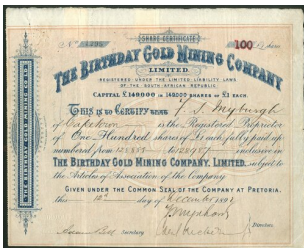 SHARE CERTIFICATE
No
100
THE BIRTHDAY GOLD MINING COMPANY
LIMITED
REGISTERED UNDER THE LIMITED LIABILITY LAWS
OF THE SOUTH AFRICAN REPUBLIC
CAPITAL £148000 IN 148000 SHARES OF £1 EACH.
THIS IS TO CERTIFY THAT J. S. Myburgh
of Capetown is the Registered Proprietor
of One Hundred shares of £1 each fully paid up
numbered from to inclusive in
THE BIRTHDAY GOLD MINING COMPANY, LIMITED, subject to
the Articles of Association of the Company
GIVEN UNDER THE COMMON SEAL OF THE COMPANY AT PRETORIA.
this day of December
Secretary
Directors